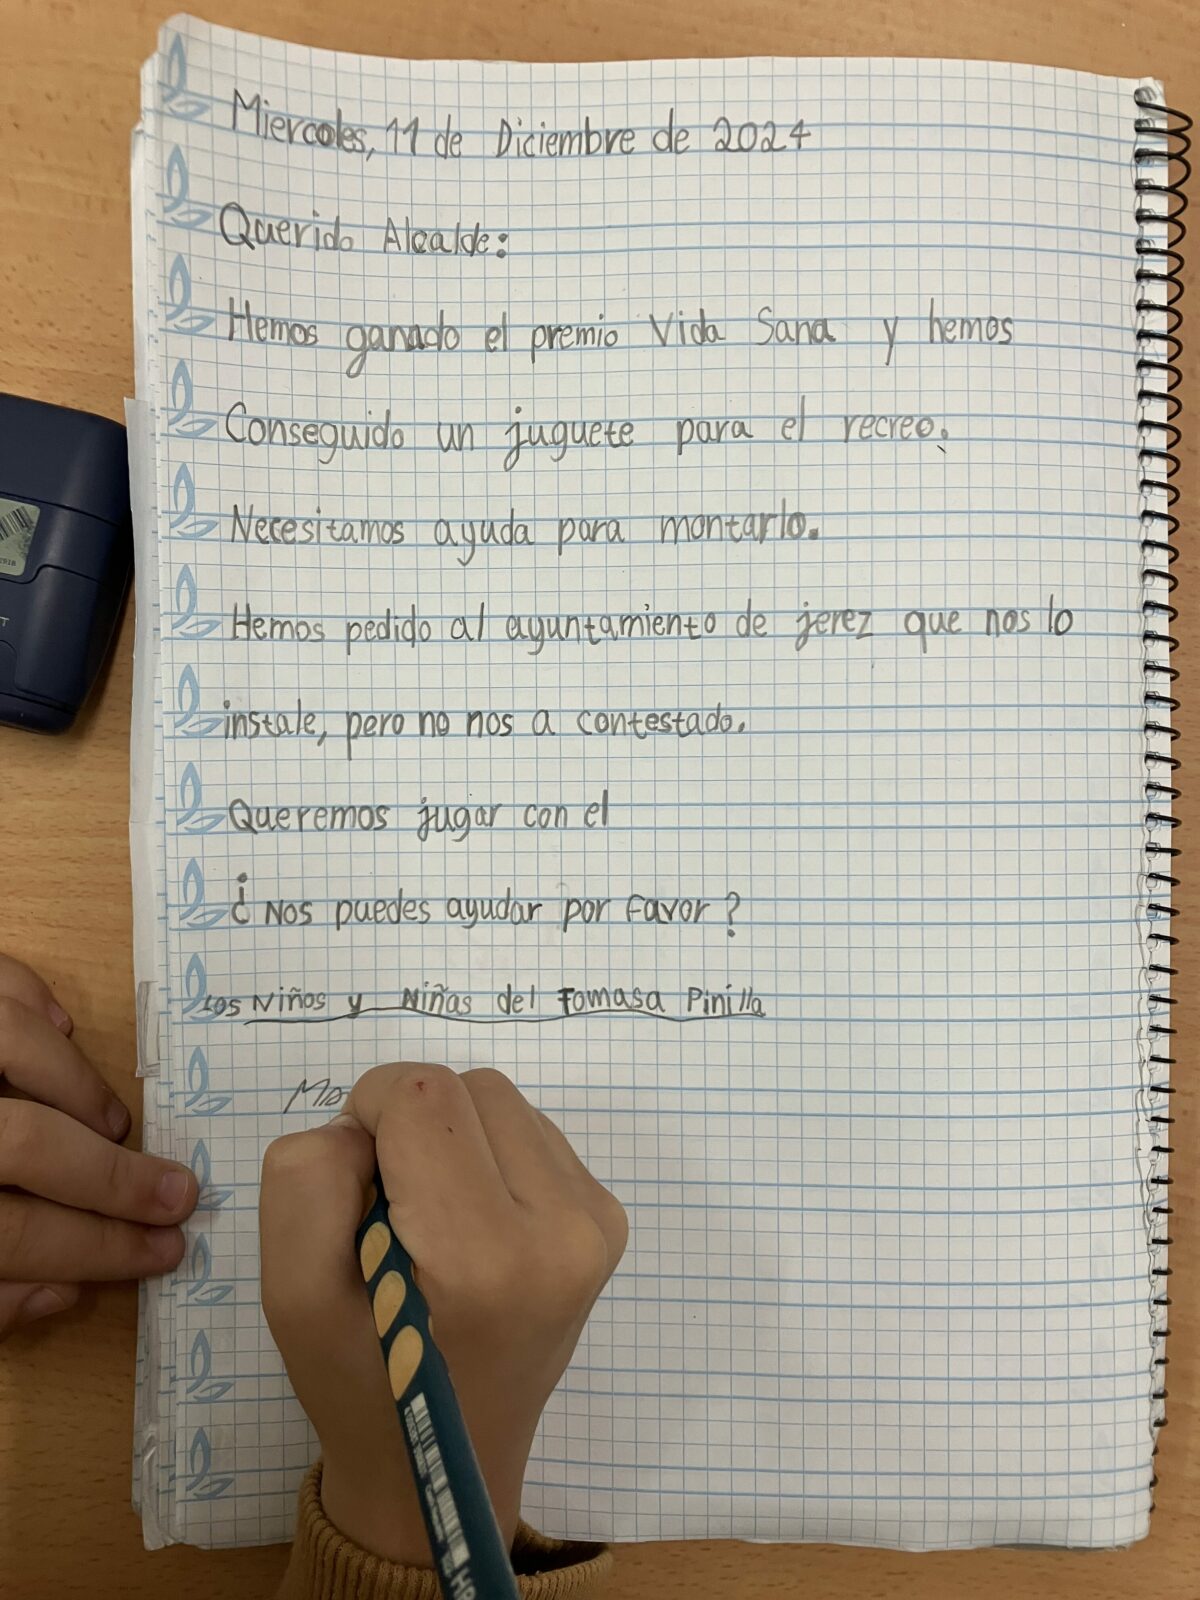 Miercoles, 11 de Diciembre de 2024
Querido Alcalde:
Hemos ganado el premio Vida Sana y hemos
Conseguido un juguete para el recreo.
Necesitamos ayuda para montarlo.
Hemos pedido al ayuntamiento de jerez que nos lo
instale, pero no nos a contestado.
Queremos jugar con el
¿Nos puedes ayudar por favor?
Los Niños y Niñas del Tomasa Pinilla
Ma